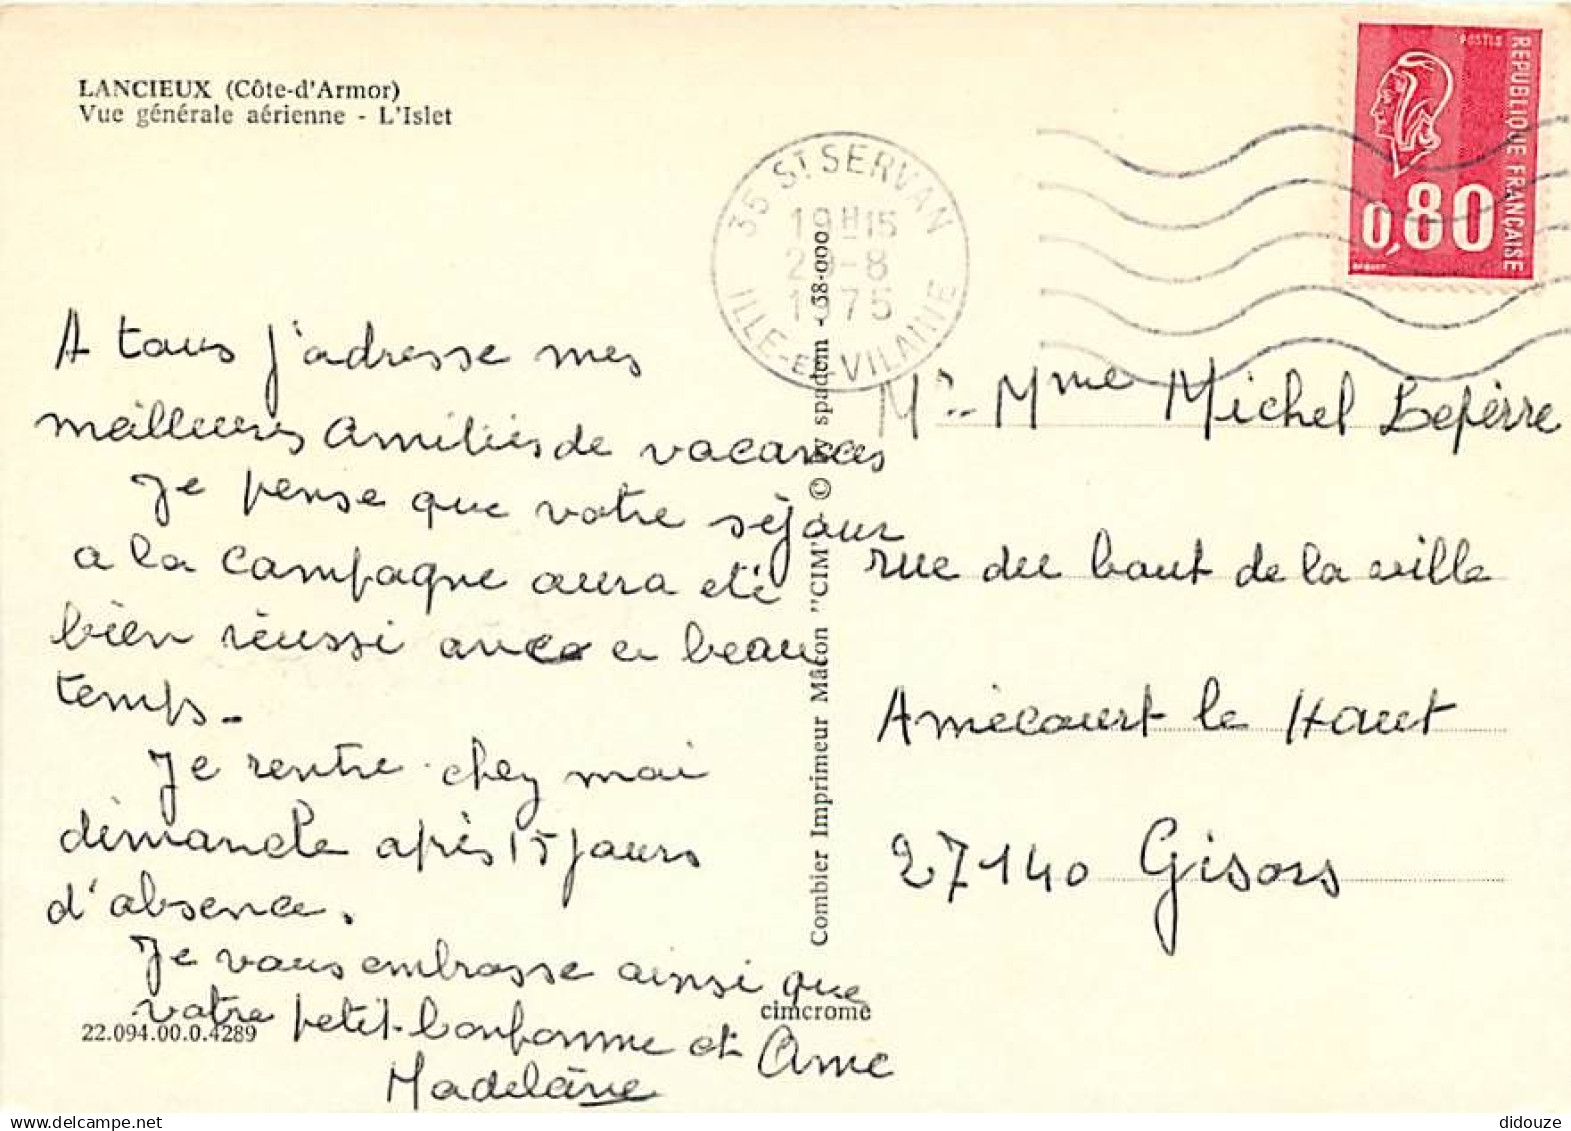 LANCIEUX (Côte-d'Armor)
Vue générale aérienne - L'Islet
35 ST SERVAN
19H15
29-8
1975
ILLE-ET-VILAINE
POSTES
REPUBLIQUE FRANÇAISE
0,80
BEQUET
A tous j'adresse mes
meilleures amitiés de vacances
Je pense que votre séjour
a la campagne aura été
bien réussi avec ce beau
temps.
Je rentre chez moi
dimanche après 15 jours
d'absence.
Je vous embrasse ainsi que
votre petit-bonhomme et Anne
Madeleine
Combier Imprimeur Mâcon "CIM" - © by spadem - 38-000
Mr. Mme Michel Lefèrre
rue du haut de la ville
Amécourt le Haut
27140 Gisors
22.094.00.0.4289
cimcrome
didouze